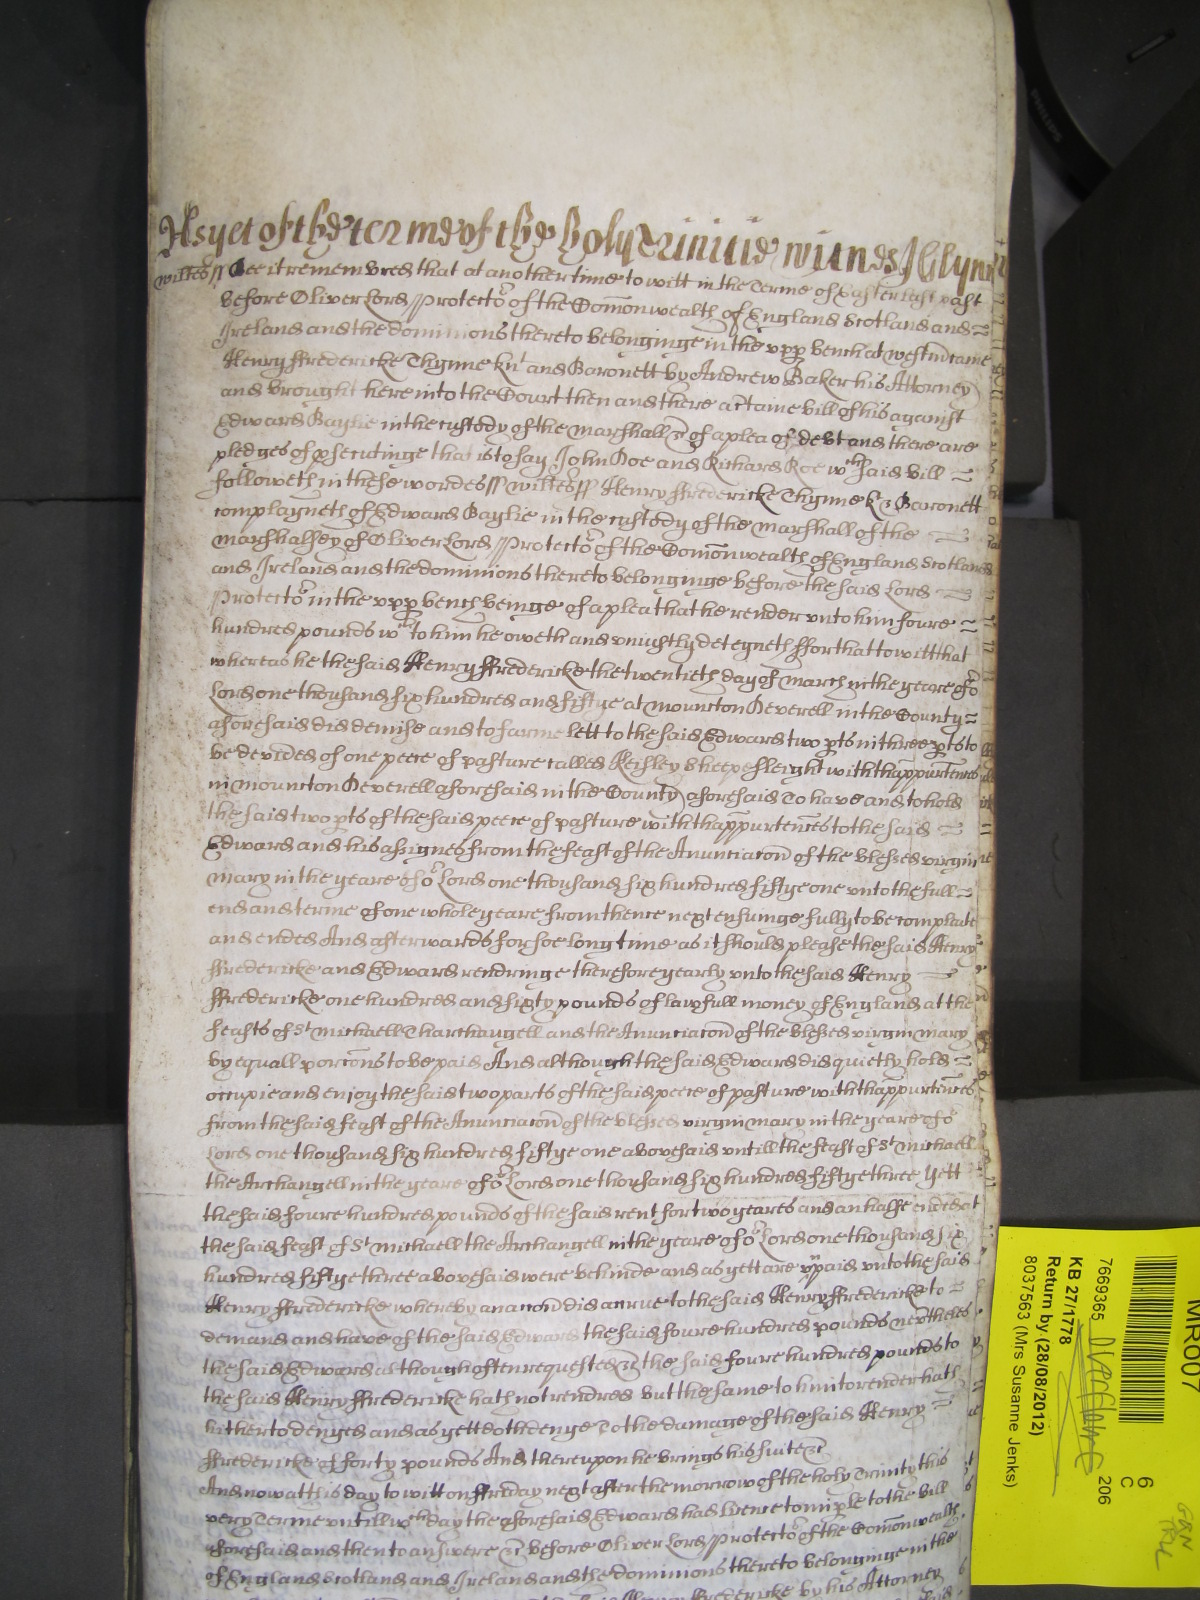 As yet of the terme of the holy Trinitie
Wiltes// Bee it remembred that at another time to witt in the Terme of Easter last past
before Oliver Lord Protecto[r] of the Com̄onwealth of England Scotland and
Ireland and the dominions thereto belonginge in the upp[er] bench at westm̄ came
Henry ffredericke Thynne kn[t] and Baronett by Andrew Baker his Attorney
and brought here into the Court then and there a c[er]taine bill of his against
Edward Baylie in the custody of the marshall &c of a plea of debt and there are
pledges of p[ro]secutinge that is to say John Doe and Richard Roe w[ch] said bill
followeth in these wordes// wiltes// Henry ffredericke Thynne k & Baronett
complayneth of Edward Baylie in the custody of the marshall of the
marshalsey of Oliver Lord Protecto[r] of the Com̄onwealth of England Scotland
and Ireland and the dominions thereto belonginge before the said Lord
Protecto[r] in the upp[er] bench beinge of a plea that he render unto him foure
hundred pounds w[ch] to him he oweth and uniustly deteyneth ffor that to witt that
whereas he the said Henry ffredericke the twentieth day of march in the yeare of o[r]
Lord one thousand six hundred and fiftye at mouncton Deverell in the County
aforesaid did demise and to farme lett to the said Edward two p[ar]ts in three p[ar]ts to
be devided of one peece of pasture called Keisley Sheepesleight with thapp[ur]ten[a]nces
in mouncton Deverell aforesaid in the County aforesaid To have and to hold
the said two p[ar]ts of the said peece of pasture with thapp[ur]ten[a]nces to the said
Edward and his assignes from the feast of the Anunciacōn of the blessed virgin
mary in the yeare of o[r] Lord one thousand six hundred fiftye one unto the full
end and terme of one whole yeare from thence next ensuinge fully to be compleate
and ended And afterwards for soe long time as it should please the said Henry
ffredericke and Edward rendringe therefore yearly unto the said Henry
ffredericke one hundred and sixty pounds of lawfull money of England at the
feasts of S[t] michaell Tharchangell and the Anunciacōn of the blessed virgin mary
by equall porc[i]ons to be paid And although the said Edward did quietly hold
occupie and enjoy the said two parts of the said peece of pasture with thapp[ur]ten[a]nces
from the said feast of the Anunciacōn of the blessed virgin mary in the yeare of o[r]
Lord one thousand six hundred fiftye one abovesaid untill the feast of S[t] michaell
the Archangell in the yeare of o[r] Lord one thousand six hundred fiftye three Yett
the said foure hundred pounds of the said rent for two yeares and an halfe ended at
the said feast of S[t] michaell the Archangell in the yeare of o[r] Lord one thousand six
hundred fiftye three abovesaid were behinde and as yett are unpaid unto the said
Henry ffredericke whereby an accōn did accrue to the said Henry ffredericke to
demand and have of the said Edward the said foure hundred pounds nev[er]theles
the said Edward although often requested &c the said foure hundred pounds to
the said Henry ffredericke hath not rendred but the same to him to render hath
hitherto denyed and as yett doth denye To the damage of the said Henry
ffredericke of forty pounds And thereupon he brings his suite &c
And now att this day to witt on ffriday next after the morrow of the holy Trinity this
very Terme untill w[ch] day the aforesaid Edward had licence to imp[ar]le to the bill
aforesaid and then to answere &c before Oliver Lord Protecto[r] of the Com̄onwealth
of England Scotland and Ireland and the dominions thereto belonginge in the
Henry ffredericke by his Attorney
PHILIPS
MR007
6
C
206
7669365
KB 27/1778
Return by (28/08/2012)
8037563 (Mrs Susanne Jenks)